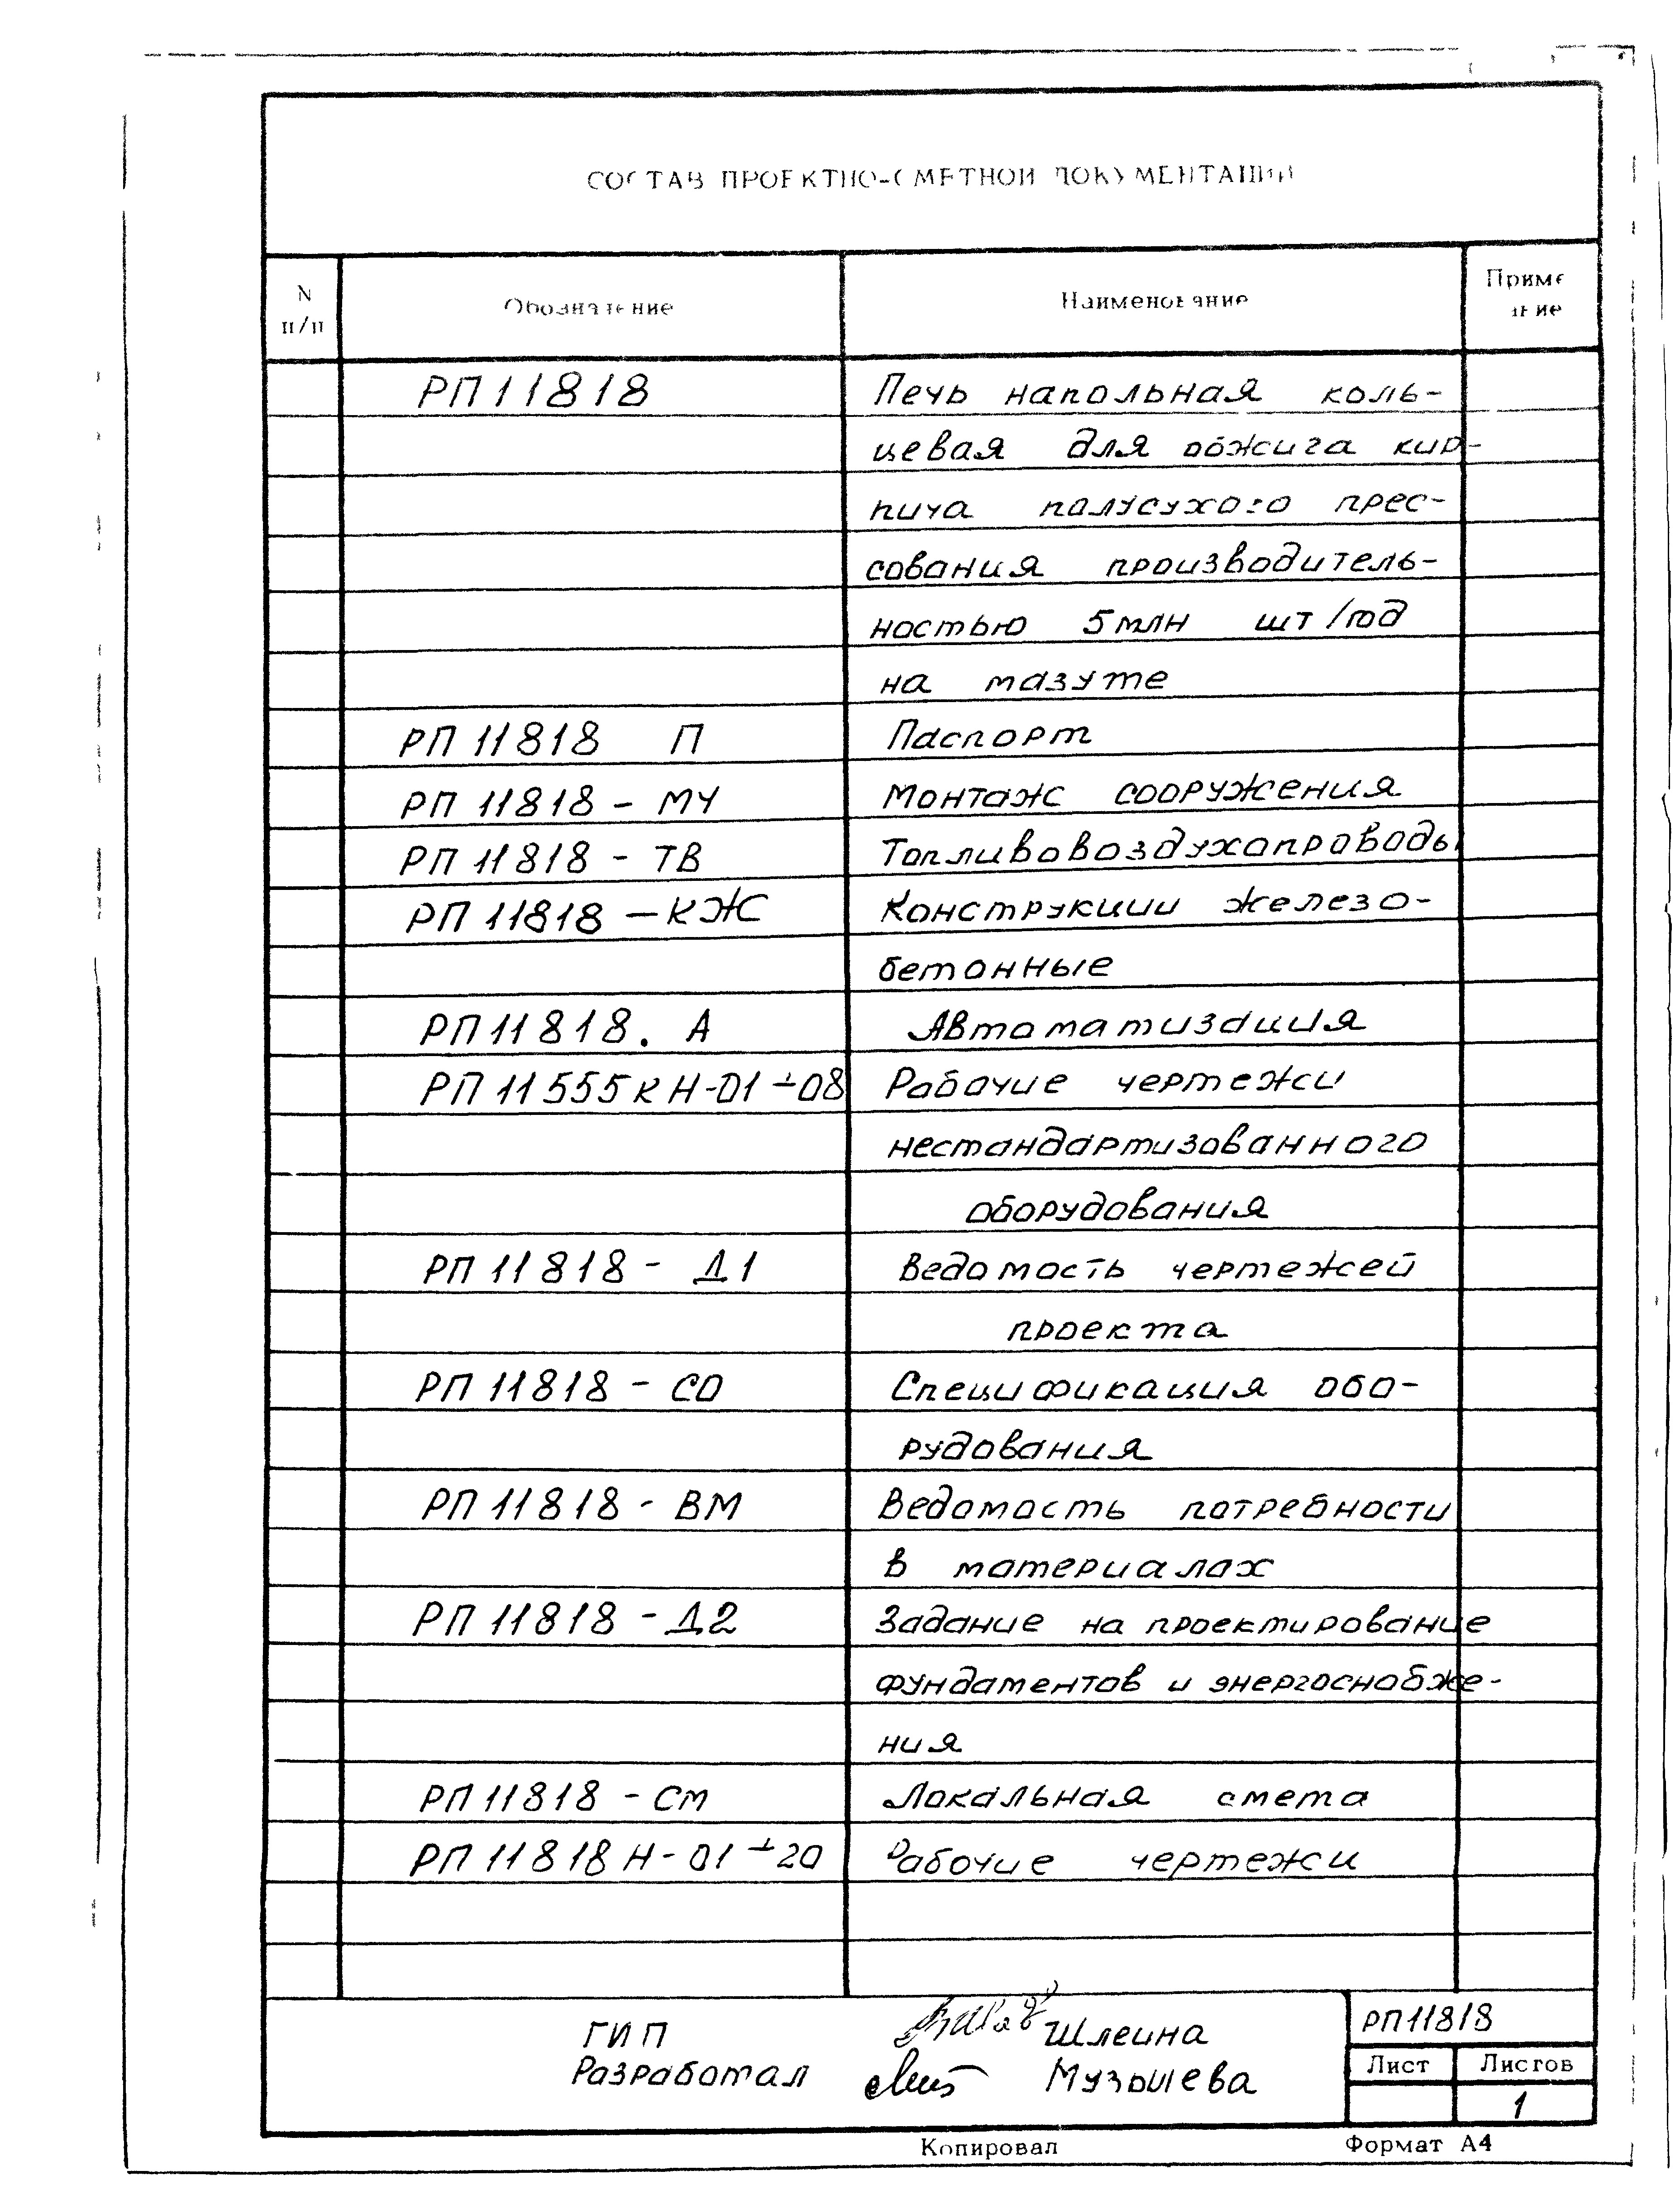 СОСТАВ ПРОЕКТНО-СМЕТНОЙ ДОКУМЕНТАЦИИ
N п/п Обозначение Наименование Приме
ч ние
РП 11818 Печь напольная коль-
цевая для обжига кир-
пича полусухого прес-
сования производитель-
ностью 5 млн шт/год
на мазуте
РП 11818 П Паспорт
РП 11818 - МЧ Монтаж сооружения
РП 11818 - ТВ Топливовоздухопроводы
РП 11818 - КЖ Конструкции железо-
бетонные
РП 11818. А Автоматизация
РП 11555КН-01÷08 Рабочие чертежи
нестандартизованного
оборудования
РП 11818 - Д1 Ведомость чертежей
проекта
РП 11818 - СО Спецификация обо-
рудования
РП 11818 - ВМ Ведомость потребности
в материалах
РП 11818 - Д2 Задание на проектирование
фундаментов и энергоснабже-
ния
РП 11818 - СМ Локальная смета
РП 11818Н-01÷20 Рабочие чертежи
ГИП Шлеина РП11818
Разработал Лист Листов
1
Копировал Формат А4